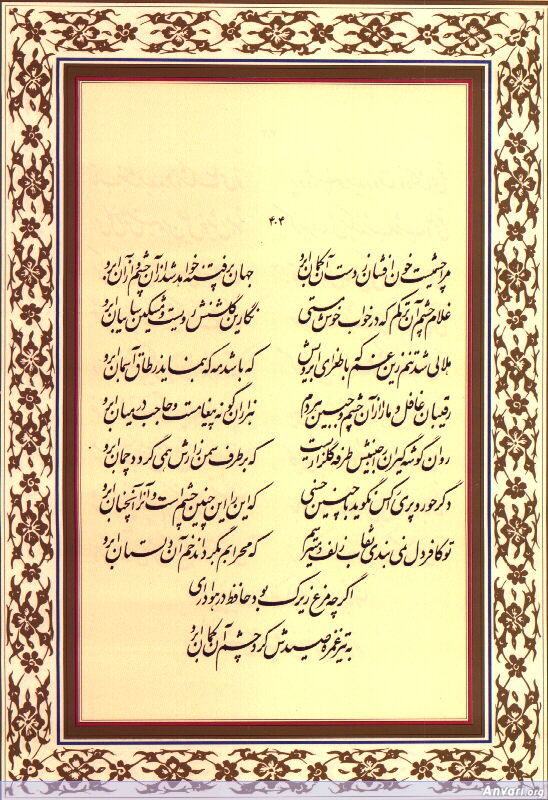 ۴۰۴
مرا چشمیست خون افشان ز دست آن کمان ابرو
جهان پرفتنه خواهد شد از آن چشم و از آن ابرو
غلام چشم آن ترکم که در خواب خوش مستی
نگارین گلشنش رویست و مشکین سایبان ابرو
هلالی شد تنم زین غم که با طغرای ابرویش
که باشد مه که بنماید ز طاق آسمان ابرو
رقیبان غافل و ما را از آن چشم و جبین هر دم
هزاران گونه پیغامست و حاجب در میان ابرو
روان گوشه گیران را جبینش طرفه گلزاریست
که بر طرف سمن زارش همی گردد چمان ابرو
دگر حور و پری را کس نگوید با چنین حسنی
که این را این چنین چشم است و آن را آنچنان ابرو
تو کافر دل نمی بندی نقاب زلف و می ترسم
که محرابم بگرداند خم آن دلستان ابرو
اگر چه مرغ زیرک بود حافظ در هواداری
به تیر غمزه صیدش کرد چشم آن کمان ابرو
Anvari.org